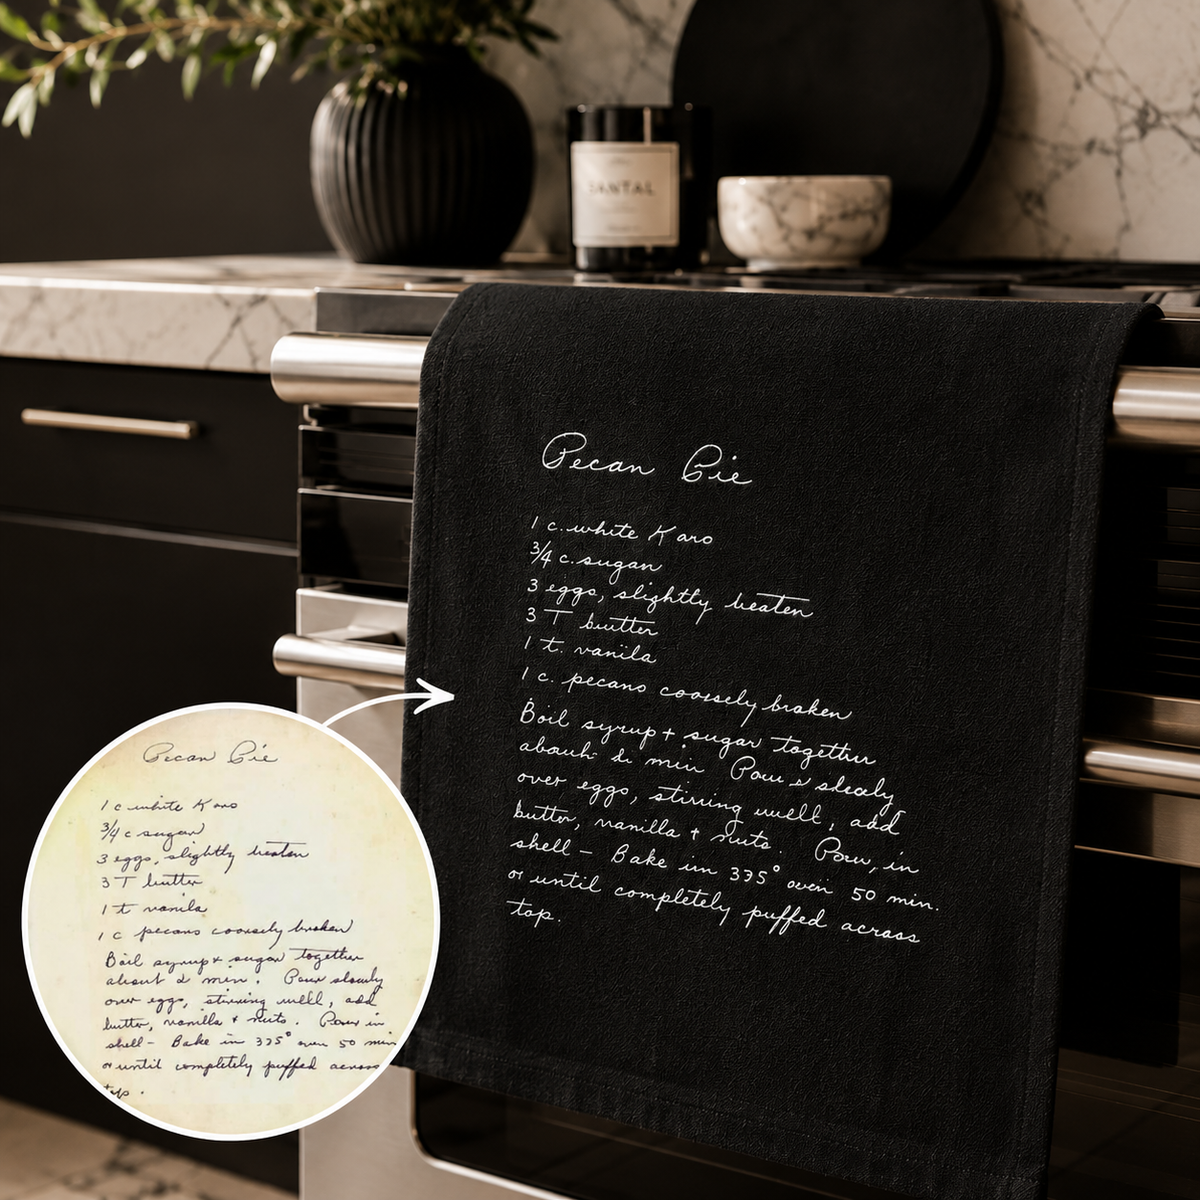 SANTAL
Pecan Pie
1 c. white Karo
3/4 c. sugar
3 eggs, slightly beaten
3 T butter
1 t. vanila
1 c. pecans coarsely broken
Boil syrup + sugar together
about 2 min Pour slowly
over eggs, stirring well, add
butter, vanilla + nuts. Pour in
shell - Bake in 335° oven 50 min.
or until completely puffed across
top.
Pecan Pie
1 c white Karo
3/4 c sugar
3 eggs, slightly beaten
3 T butter
1 t vanila
1 c pecans coarsely broken
Boil syrup + sugar together
about 2 min. Pour slowly
over eggs, stirring well, add
butter, vanilla + nuts. Pour in
shell - Bake in 335° oven 50 min
or until completely puffed across
top.